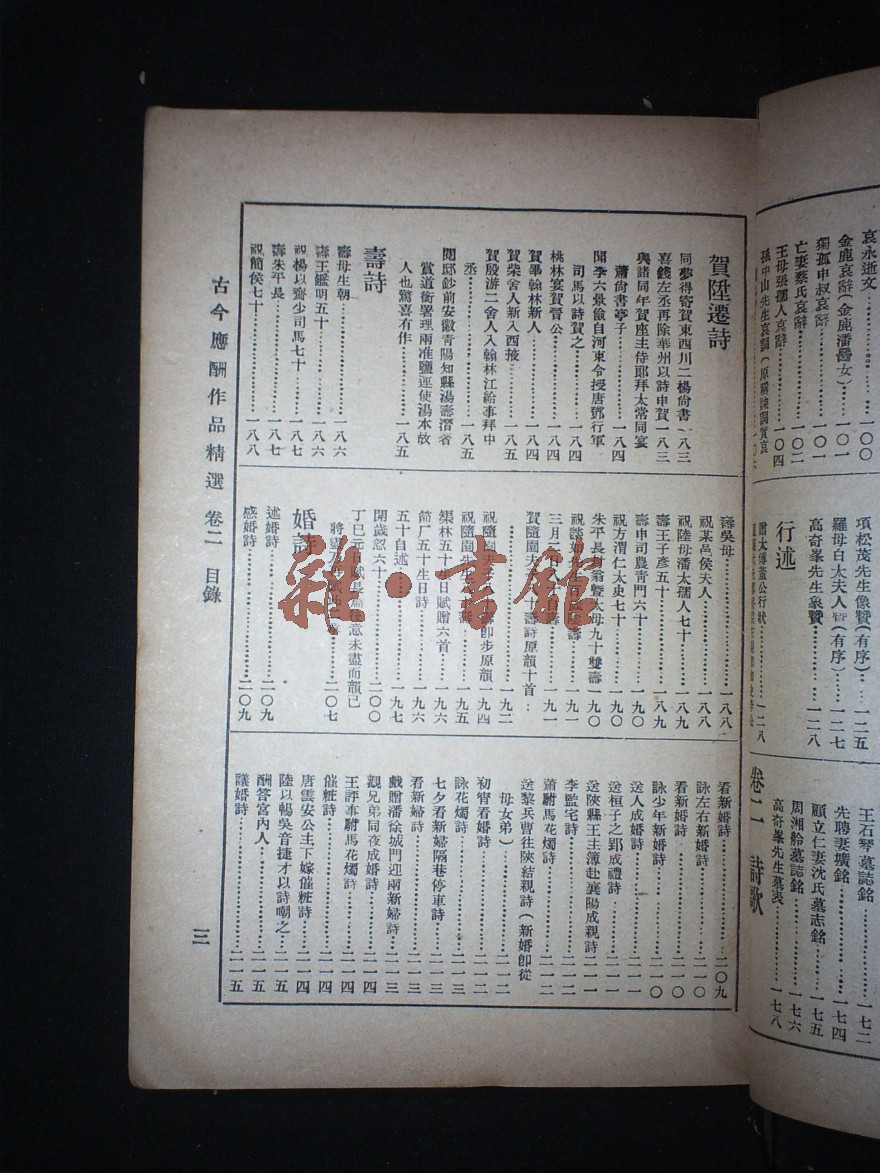 哀永逝文……一〇〇
金鹿哀辭(金鹿潘嶽女)……一〇一
獨孤申叔哀辭……一〇一
亡妻蔡氏哀辭……一〇二
王母張孺人哀辭……一〇四
項松茂先生像贊(有序)……一二五
羅母白太夫人
(有序)……一二七
高奇峯先生象贊……一二八
行述
贈太傅董公行狀……一二八
王石琴墓誌銘……一七二
先聘妻壙銘……一七四
顧立仁妻沈氏墓志銘……一七五
周湘舲墓誌銘……一七六
高奇峯先生墓表……一七八
卷二 詩歌
賀陞遷詩
同夢得寄賀東西川二楊尙書…一八三
喜錢左丞再除華州以詩申賀…一八三
與諸同年賀座主侍郞拜太常同宴
蕭尙書亭子……一八四
聞李六景儉自河東令授唐鄧行軍
司馬以詩賀之……一八四
桃林宴賀晉公……一八四
賀畢翰林新人……一八四
賀柴舍人新入西掖……一八五
賀殷游二舍人入翰林江給事拜中
丞……一八五
閱邸鈔前安徽靑陽知縣湯壽潛著
賞道銜署理兩淮鹽運使湯本故
人也驚喜有作……一八五
壽詩
壽母生朝……一八六
壽王鑑明五十……一八六
壽朱平長……一八七
祝楊以齋少司馬七十……一八七
祝簡侯七十……一八八
壽吳母……一八八
祝某邑侯夫人……一八八
祝陸母潘太孺人七十……一八九
壽王子彥五十……一八九
壽申司農靑門六十……一九〇
祝方渭仁太史七十……一九〇
朱平長
翁暨太母九十雙壽……一九〇
祝談
……一九一
三月二日
自壽……一九一
賀隨園夫
十壽詩原韻十首…
……一九二
祝隨園夫
十壽卽步原韻…一九四
祝隨園先生
壽……一九五
榘林五十
日賦贈六首……一九六
箭厂五十生日詩……一九六
五十自述……一九七
開歲忽六十……二〇〇
丁巳元日賦長篇
意未盡而韻已
將
……二〇七
婚詩
述婚詩……二〇九
感婚詩……二〇九
看新婦詩……二〇九
詠左右新婦詩……二一〇
看新婦詩……二一〇
詠少年新婦詩……二一〇
送人成婚詩……二一一
送桓子之郢成禮詩……二一一
送陝縣王主簿赴襄陽成親詩…二一一
李監宅詩……二一二
蕭駙馬花燭詩……二一二
送黎兵曹往陝結親詩(新婚卽從
母女弟)……二一二
初宵看婚詩……二一二
詠花燭詩……二一三
七夕看新婦隔巷停車詩……二一三
看新婦詩……二一三
戲贈潘徐城門迎兩新婦詩…二一三
觀兄弟同夜成婚詩……二一四
王評事駙馬花燭詩……二一四
催粧詩……二一四
唐雲安公主下嫁催粧詩……二一四
陸以暢吳音捷才以詩嘲之…二一五
酬答宮內人……二一五
議婚詩……二一五
古今應酬作品精選 卷二 目錄
三
雜·書館